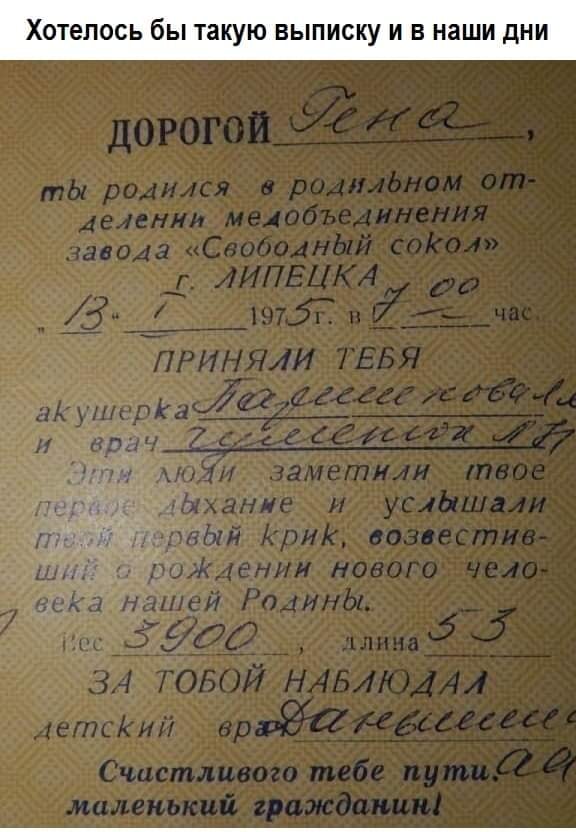 Хотелось бы такую выписку и в наши дни
ДОРОГОЙ Гена,
ты родился в родильном от-
делении медобъединения
завода «Свободный сокол»
г. ЛИПЕЦКА
"13" I 1975г. в 7 00 час.
ПРИНЯЛИ ТЕБЯ
акушерка
и врач
Эти люди заметили твое
первое дыхание и услышали
твой первый крик, возвестив-
ший о рождении нового чело-
века нашей Родины.
Вес 3900, длина 53
ЗА ТОБОЙ НАБЛЮДАЛ
детский врач
Счастливого тебе пути,
маленький гражданин!